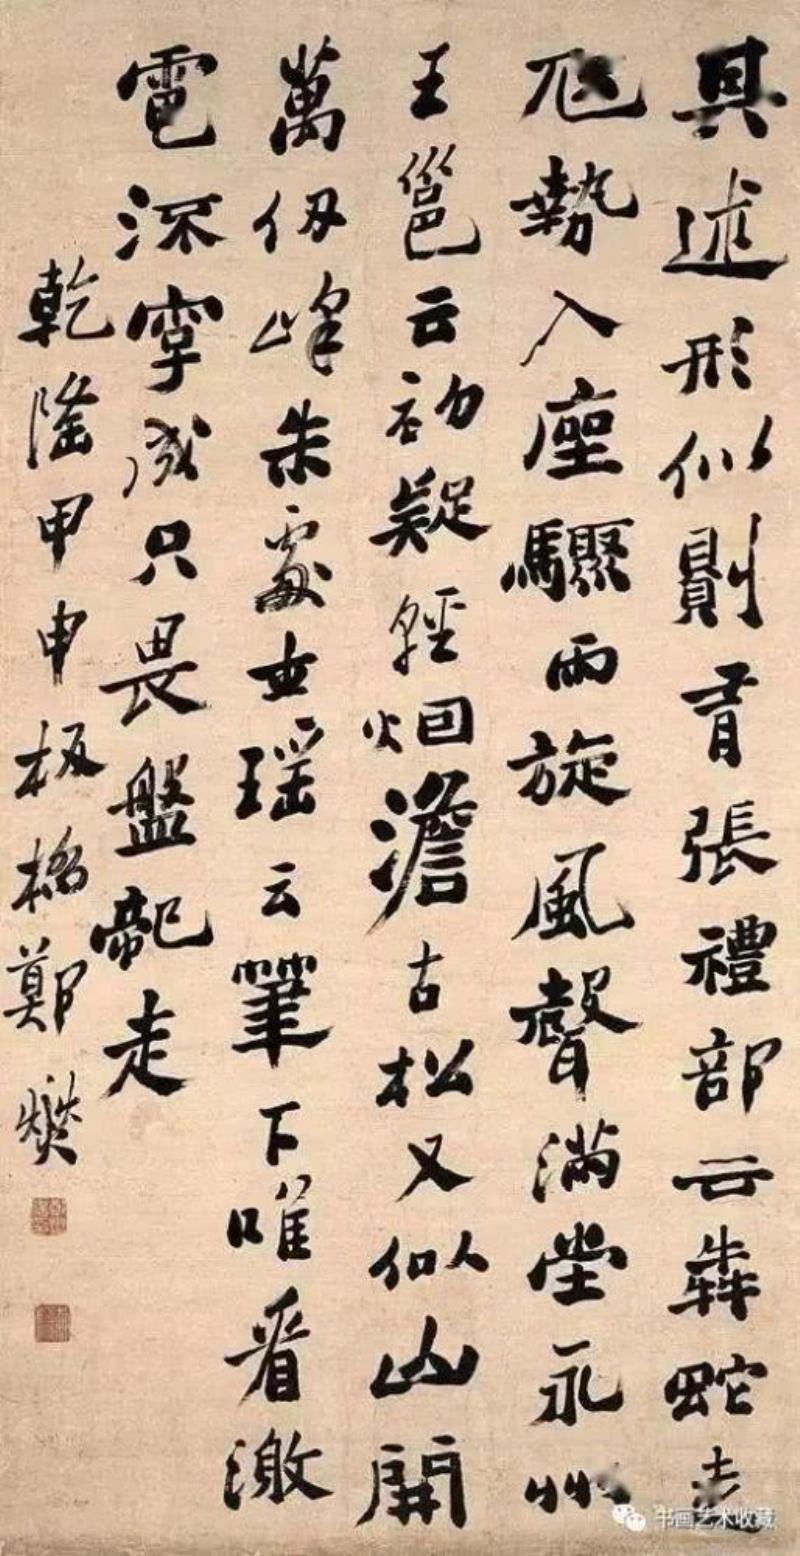 其述形似則有張禮部云犇蛇走
虺勢入座驟雨旋風聲滿堂永州
王邕云初疑輕烟澹古松又似山開
萬仞峰朱處士瑶云筆下唯看激
電流字成只畏盤龍走
乾隆甲申板橋鄭燮
书画艺术收藏